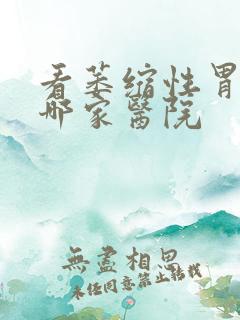 看萎缩性胃
哪家醫院
無盡相思
未经同意禁止转载